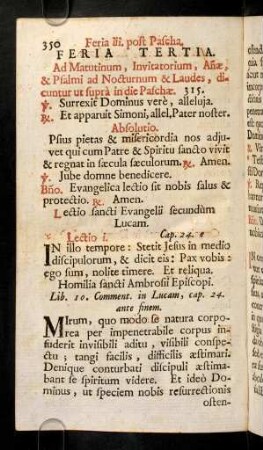 350 Feria iii. post Pascha.
FERIA TERTIA.
Ad Matutinum, Invitatorium, Añæ,
& Psalmi ad Nocturnum & Laudes, di-
cuntur ut suprà in die Paschæ. 315.
℣. Surrexit Dominus verè, alleluja.
℟. Et apparuit Simoni, allel, Pater noster.
Absolutio.
Psius pietas & misericordia nos adju-
vet qui cum Patre & Spiritu sancto vivit
& regnat in sæcula sæculorum. ℟. Amen.
℣. Jube domne benedicere.
Bño. Evangelica lectio sit nobis salus &
protectio. ℟. Amen.
Lectio sancti Evangelii secundùm
Lucam.
Lectio i. Cap. 24. e
IN illo tempore: Stetit Jesus in medio
discipulorum, & dicit eis: Pax vobis:
ego sum, nolite timere. Et reliqua.
Homilia sancti Ambrosii Episcopi.
Lib. 10. Comment. in Lucam, cap. 24.
ante finem.
MIrum, quo modo se natura corpo-
rea per impenetrabile corpus in-
fuderit invisibili aditu, visibili conspe-
ctu; tangi facilis, difficilis æstimari.
Denique conturbati discipuli æstima-
bant se spiritum videre. Et ideò Do-
minus, ut speciem nobis resurrectionis
osten-